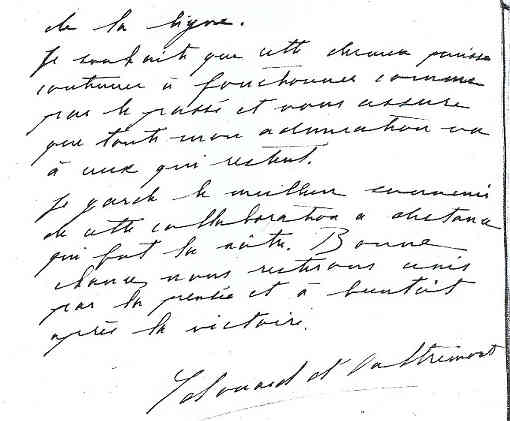 de la ligne.
Je souhaite que cette chaine puisse
continuer à fonctionner comme
par le passé et vous assure
que toute mon admiration va
à ceux qui restent.
Je garde le meilleur souvenir
de cette collaboration à distance
qui fut la nôtre. Bonne
chance, nous resterons unis
par la pensée et à bientôt
après la victoire.
Edouard d'